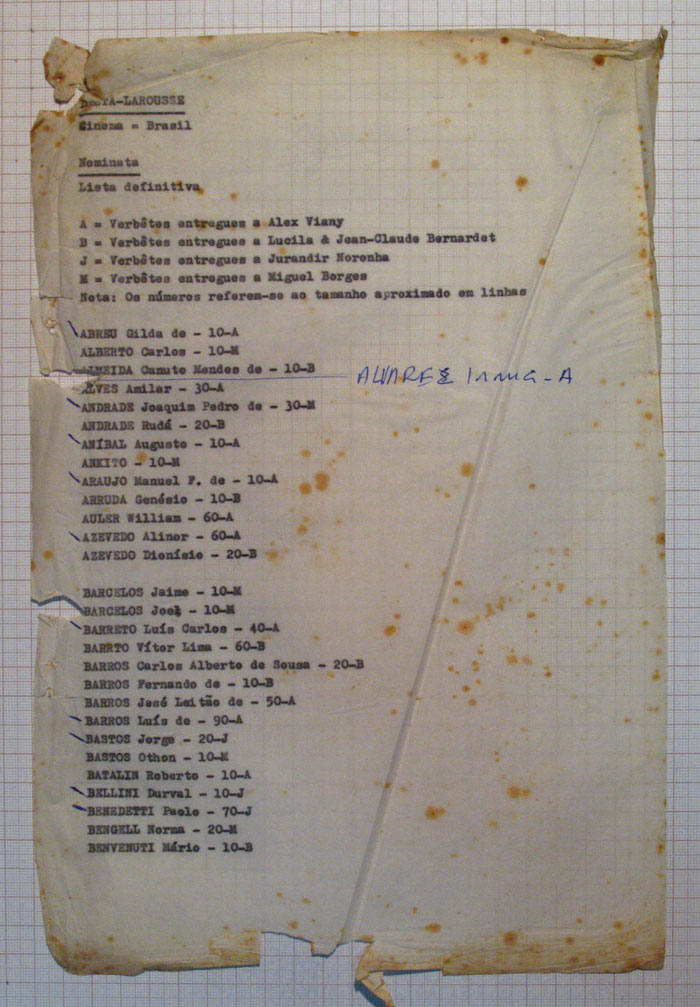 DELTA-LAROUSSE
Cinema = Brasil
Nominata
Lista definitiva
A = Verbêtes entregues a Alex Viany
B = Verbêtes entregues a Lucila & Jean-Claude Bernardet
J = Verbêtes entregues a Jurandir Noronha
M = Verbêtes entregues a Miguel Borges
Nota: Os números referem-se ao tamanho aproximado em linhas
ABREU Gilda de - 10-A
ALBERTO Carlos - 10-M
ALMEIDA Canuto Mendes de - 10-B ALVAREZ - A
ALVES Amilar - 30-A
ANDRADE Joaquim Pedro de - 30-M
ANDRADE Rudá - 20-B
ANÍBAL Augusto - 10-A
ANKITO - 10-M
ARAUJO Manuel F. de - 10-A
ARRUDA Genésio - 10-B
AULER William - 60-A
AZEVEDO Alinor - 60-A
AZEVEDO Dionísio - 20-B
BARCELOS Jaime - 10-M
BARCELOS Joel - 10-M
BARRETO Luís Carlos - 40-A
BARRTO Vítor Lima - 60-B
BARROS Carlos Alberto de Sousa - 20-B
BARROS Fernando de - 10-B
BARROS José Leitão de - 50-A
BARROS Luís de - 90-A
BASTOS Jorge - 20-J
BASTOS Othon - 10-M
BATALIN Roberto - 10-A
BELLINI Durval - 10-J
BENEDETTI Paolo - 70-J
BENGELL Norma - 20-M
BENVENUTI Mário - 10-B